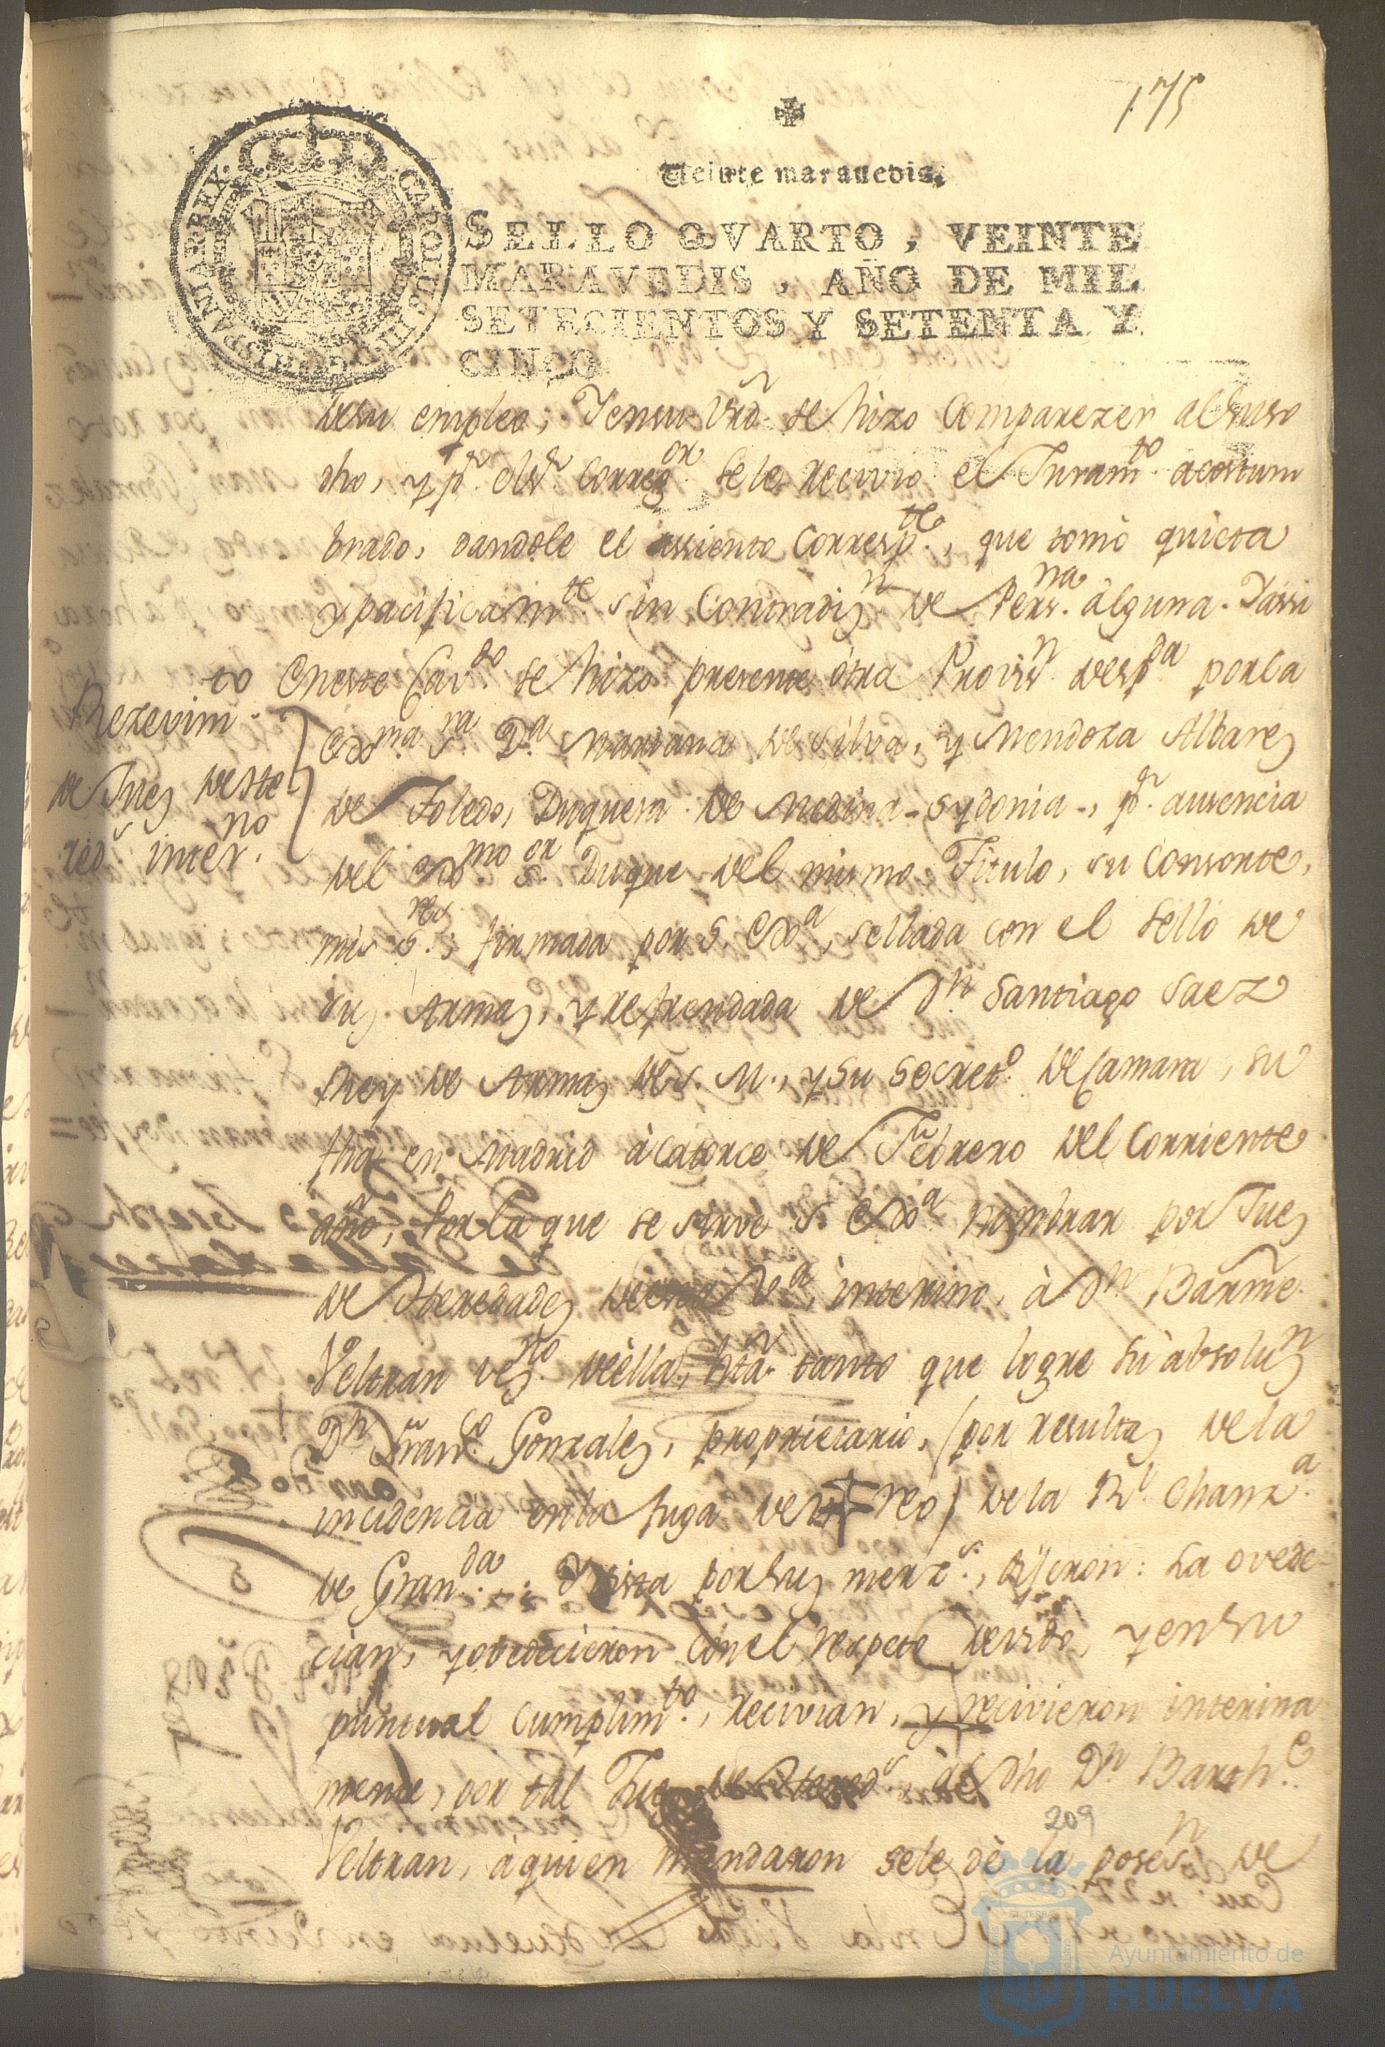 175
Veinte maravedis.
SELLO QVARTO, VEINTE
MARAVEDIS, AÑO DE MIL
SETECIENTOS Y SETENTA Y
CINCO
CAROLUS III D G HISPANIAR REX
desu empleo; Yensu Vrd. se hizo Comparezer alsuso
dho, y pr. elsr. Correg.or sele recivio el Juram.to acostum
brado, dandole el assiento Corresp.te, que tomó quieta
y pacificam.te sin Contradizn de Pers.na alguna. Yassi
to Eneste Cav.do se hizo presente ótra Provis.n desp.da porla
Rezevim
de Juez deste
red.s inter.no
Exma. S.ra D.a Mariana de Silva, y Mendoza Albarez
de Toledo, Duquesa de Medina-Sydonia, pr. ausencia
del Exmo S.or Duque del mismo Titulo, su Consorte,
mis S.res, firmada por S. Exa, sellada con el sello de
sus Armas, y refrendada de Dn Santiago Saez
Rey de Armas de S. M., y su Secret.o de Camara, su
fha en Madrid à catorce de Febrero del Corriente
año, Porla que se sirve S. Exa nombrar por Juez
de Heredades desta Va, interino, à Dn Barme.
Veltran vez.no deèlla, hta. tanto que logre su absoluzn
Dn Fran.co Gonzalez, proprietario, (por resultas dela
incidencia enla fuga de reo) dela Rl. Chanz.a
de Gran.da: Yvista porsus merz.s, dijeron: La ovede-
cian, yobedecieron Conel respeto devido, yensu
puntual Cumplim.to, recivian, y recivieron interina
mente, por tal Juez de Hered.s, àl dho Dn Barth.e
Veltran, àquien mandaron sele dè la poses.n de
209
Ayuntamiento de
HUELVA